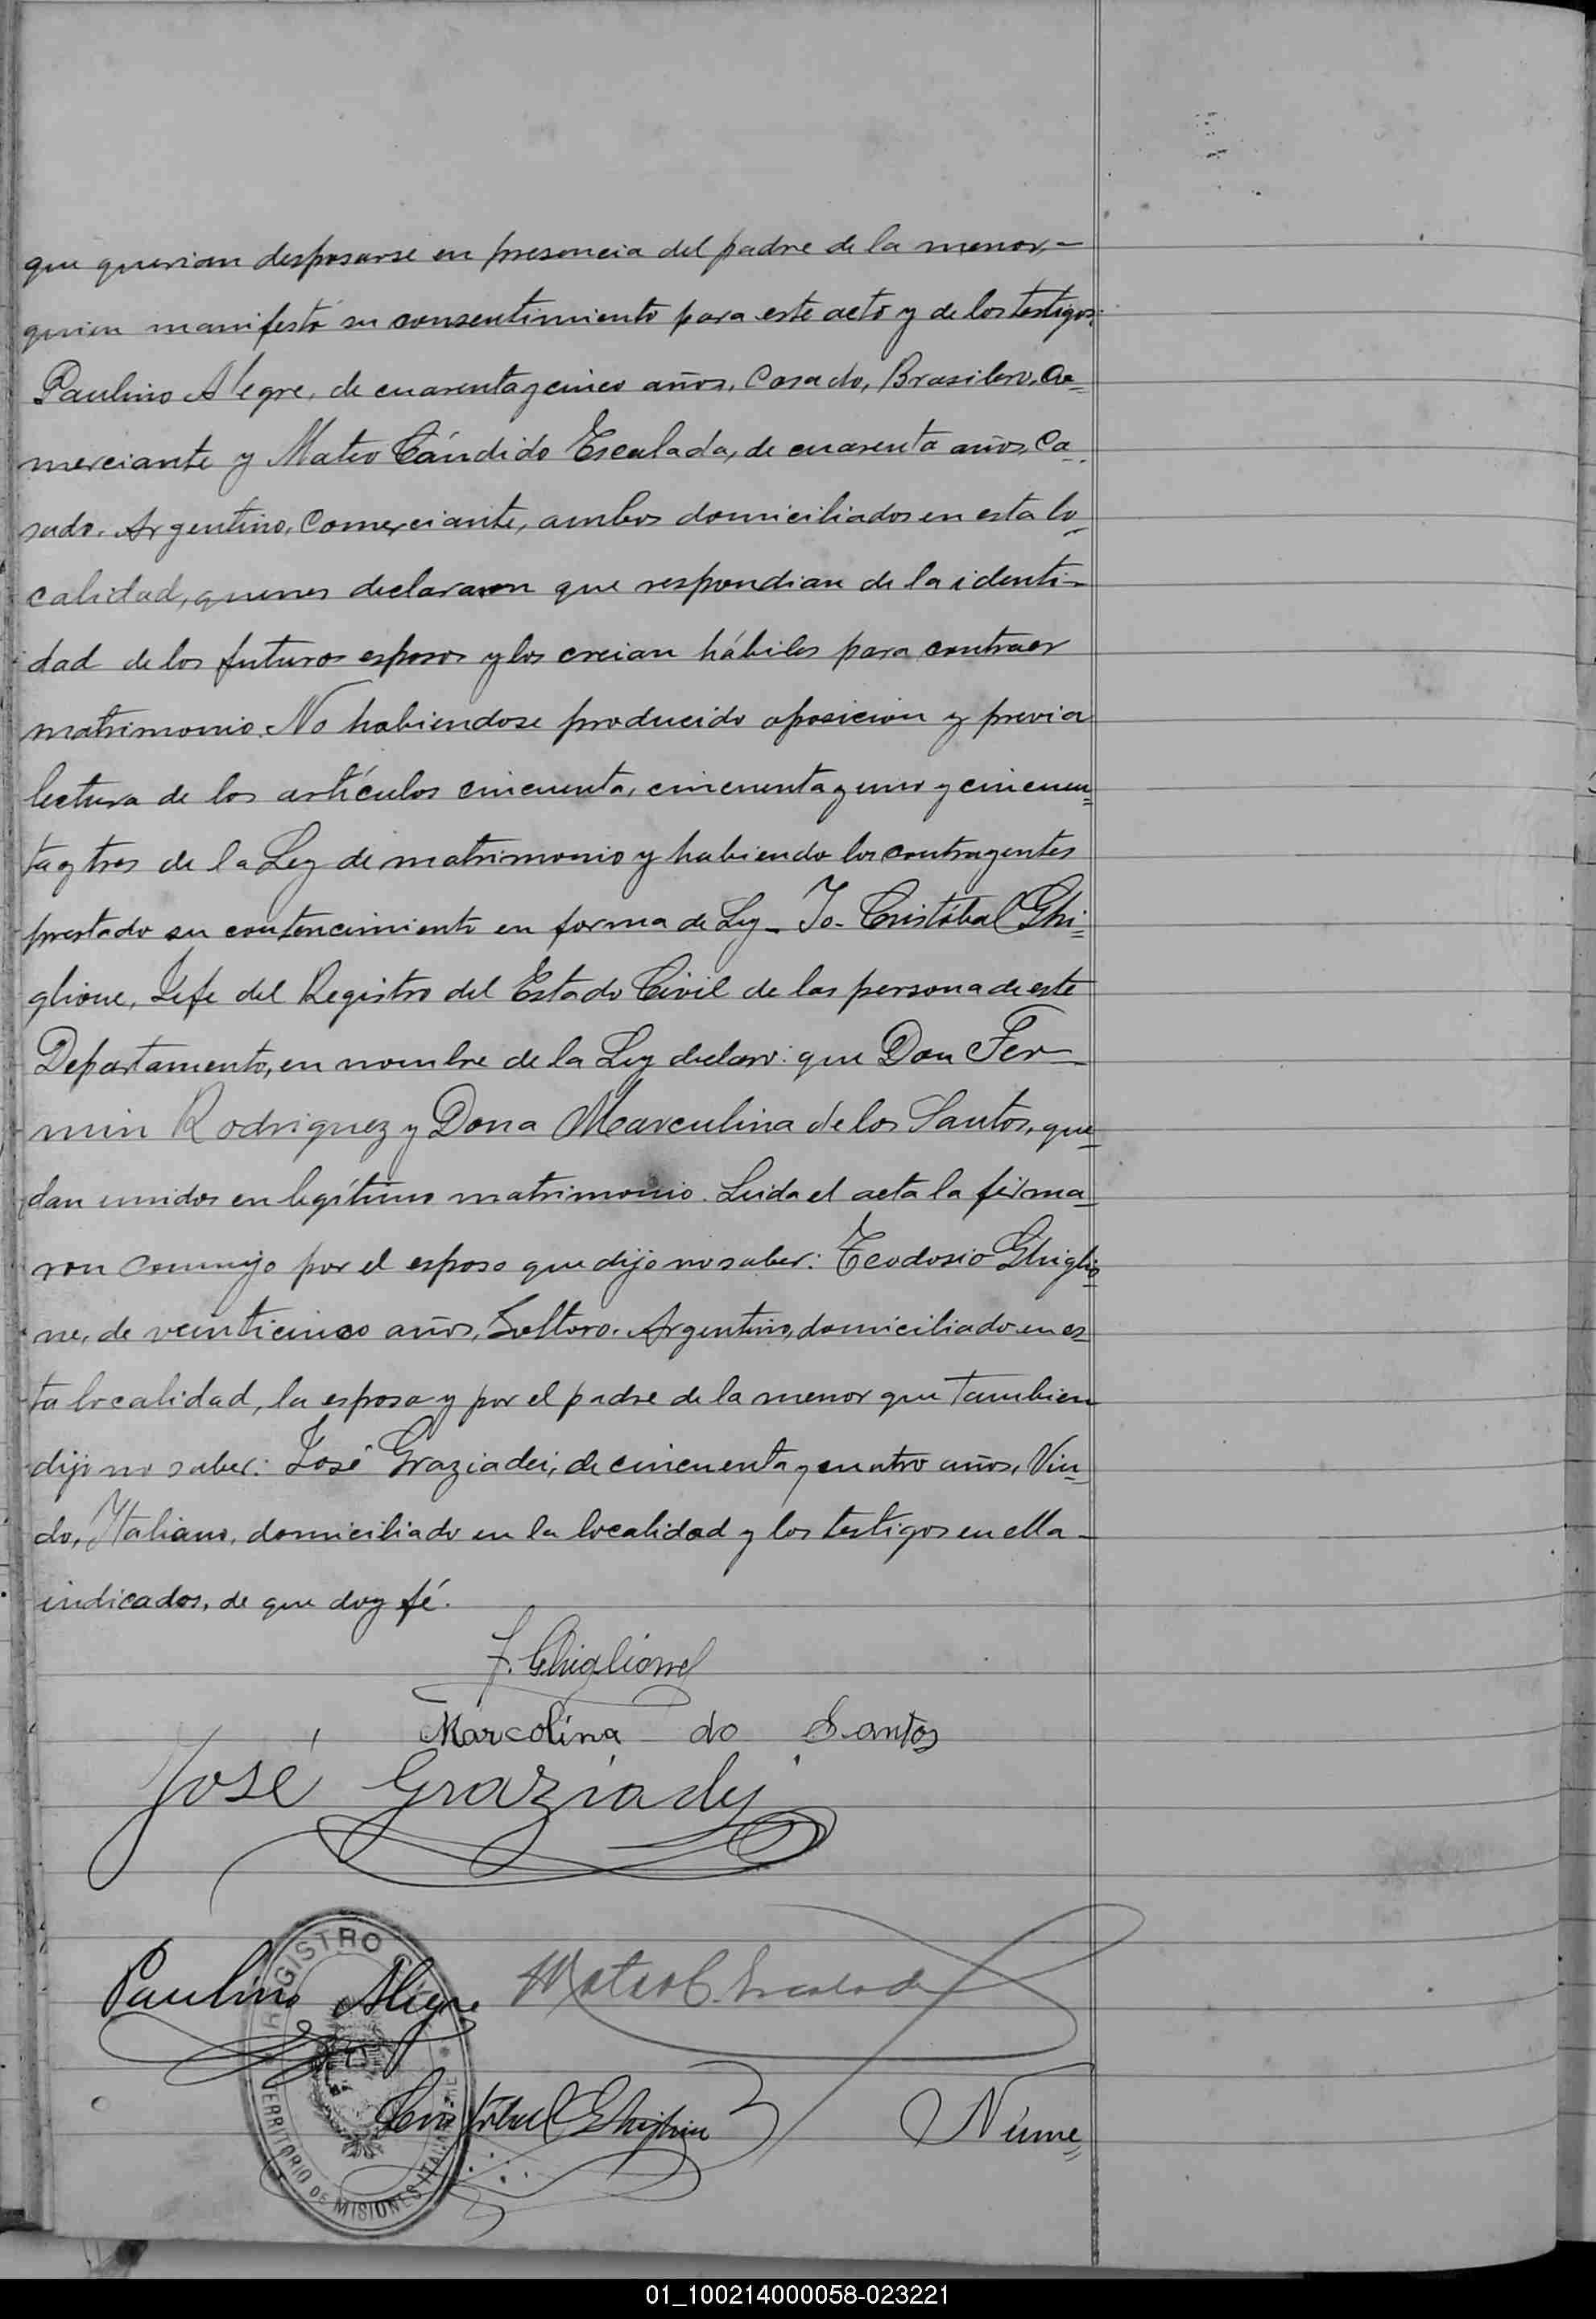 que querian desposarse en presencia del padre de la menor,-
quien manifestó su consentimiento para este acto y de los testigos:
Paulino Alegre, de cuarenta y cinco años, Casado, Brasilero, Co=
merciante y Mateo Cándido Escalada, de cuarenta años, Ca=
sado, Argentino, Comerciante, ambos domiciliados en esta lo=
calidad, quienes declararon que respondian de la identi-
dad de los futuros esposos y los creian hábiles para contraer
matrimonio. No habiendose producido oposicion y previa
lectura de los artículos cincuenta, cincuenta y uno y cincuen=
ta y tres de la Ley de matrimonio y habiendo los contrayentes
prestado su contencimiento en forma de Ley - Yo - Cristóbal Ghi=
glione, Jefe del Registro del Estado Civil de las persona de este
Departamento, en nombre de la Ley declaro: que Don Fer-
min Rodriguez y Dona Marculina de los Santos, que=
dan unidos en legítimo matrimonio. Leida el acta la firma=
ron conmigo por el esposo que dijo no saber: Teodosio Ghiglio=
ne, de veinticinco años, Soltero, Argentino, domiciliado en es=
ta localidad, la esposa y por el padre de la menor que tambien
dijo no saber: José Graziadei, de cincuenta y cuatro años, Viu=
do, Italiano, domiciliado en la localidad y los testigos en ella -
indicados, de que doy fé.
Ghiglione
Marcolina do Santos
José Graziadej
REGISTRO
Paulino Alegre Mateo C. Escalada
TERRITORIO DE MISIONES
Cristobal Ghiglione Núme=
01_100214000058-023221